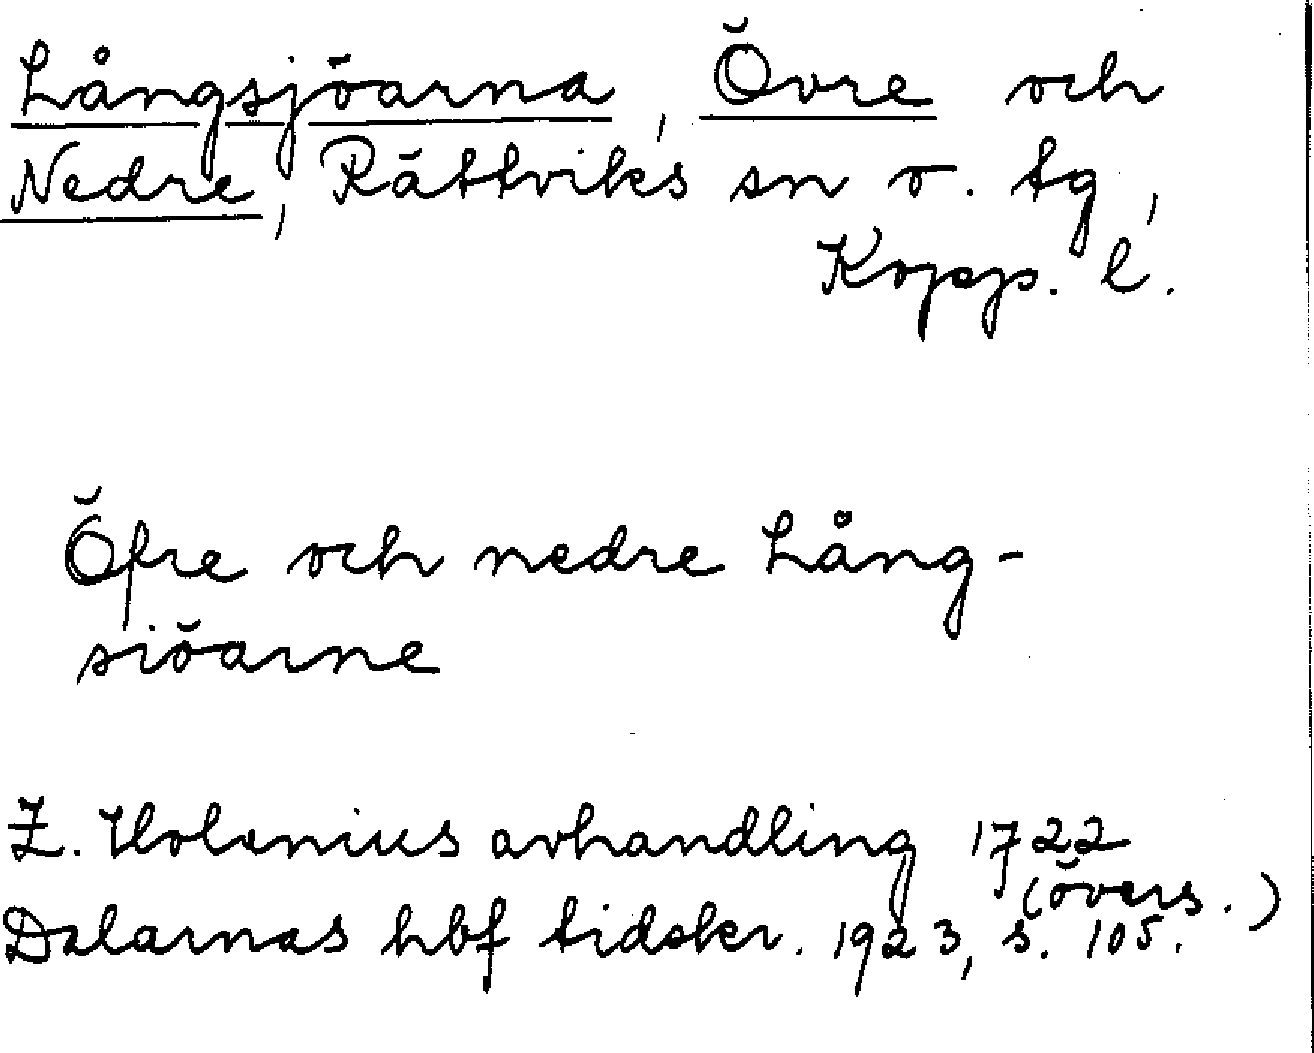 Långsjöarna, Övre och
Nedre, Rättviks sn o. tg,
Kopp. l.
Öfre och nedre Lång-
siöarne
Z. Holenius avhandling 1722
(övers.)
Dalarnas hbf tidskr. 1923, s. 105.